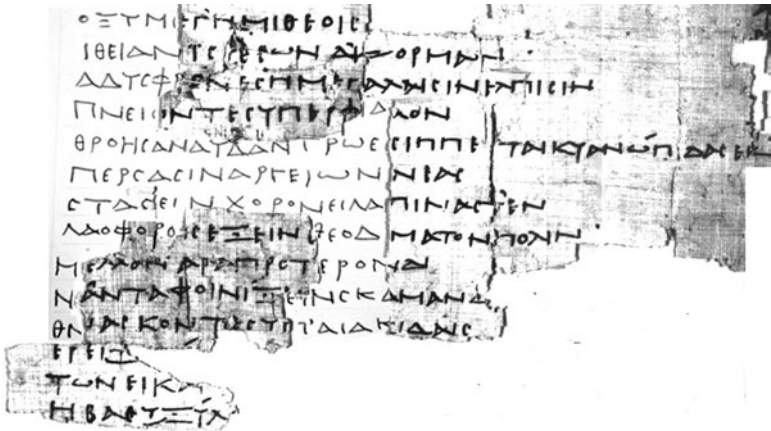 ΗΜΙΘΕΟΙϹ
ΟΡΜΑΝ
ΑΔΥϹΦΡΟΝΕϹΗΜΕΓΑΛΑΙϹΙΝΕΛΠΙϹΙΝ
ΠΝΕΙΟΝΤΕϹΥΠΕΡΦΙΑΛΟΝ
ΘΡΟΗϹΑΝΑΥΔΑΝΤΡΩΕϹΙΠΠΕ ΤΑΙΚΥΑΝΩΠΙΔΑϹΕΚ
ΠΕΡϹΑϹΙΝΑΡΓΕΙΩΝΝΕΑϹ
ΧΟΡΟΝΕΙΛΑΠΙΝΑϹΤΕΝ
ΛΑΟΦΟΡΟΙϹΕΞΕΙΝΘΕΟΔΜΑΤΟΝΠΟΛΙΝ
ΜΕΛΛΟΝΑΡΑΠΡΟΤΕΡΟΝΔΙ
ΝΑΝΤΑΦΟΙΝΙΞΕΙΝϹΚΑΜΑΝΔ
ΘΝΑΙϹΚΟΝΤΕϹΥΠΑΙΑΚΙΔΑΙϹ
ΕΡΕΙΨ
ΤΩΝΕΙΚΑΙ
ΗΒΑΘΥΞΥΛ